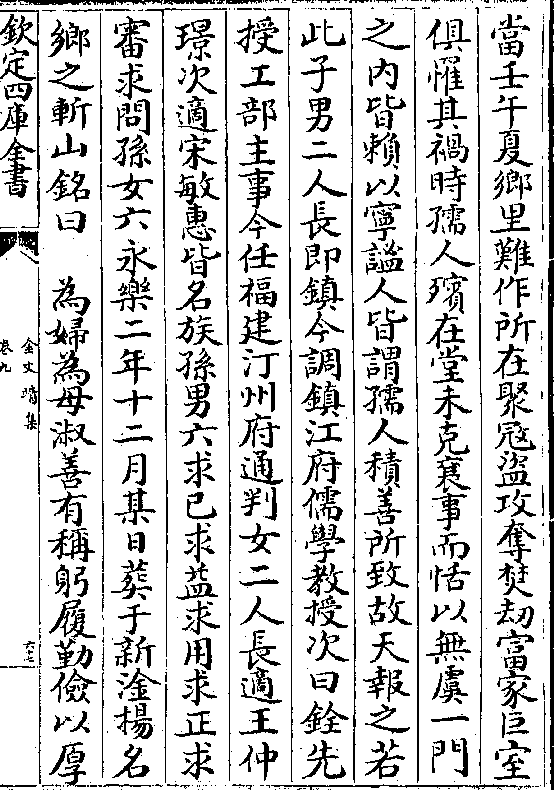 當壬午夏鄉里難作所在聚冦盜攻奪焚刧富家巨室
俱懼其禍時孺人殯在堂未克襄事而恬以無虞一門
之内皆賴以寧謐人皆謂孺人積善所致故天報之若
此子男二人長即鎮今調鎮江府儒學教授次曰銓先
授工部主事今任福建汀州府通判女二人長適王仲
璟次適宋敏惠皆名族孫男六求已求益求用求正求
審求問孫女六永樂二年十二月某日葬于新淦揚名
鄉之斬山銘曰　為婦為母淑善有稱躬履勤儉以厚
欽定四庫全書
金文靖集
卷九